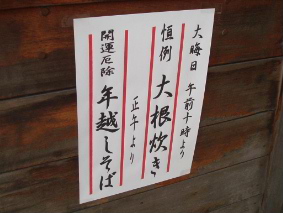 大晦日 午前十時より
恒例 大根炊き
正午より
開運厄除 年越しそば